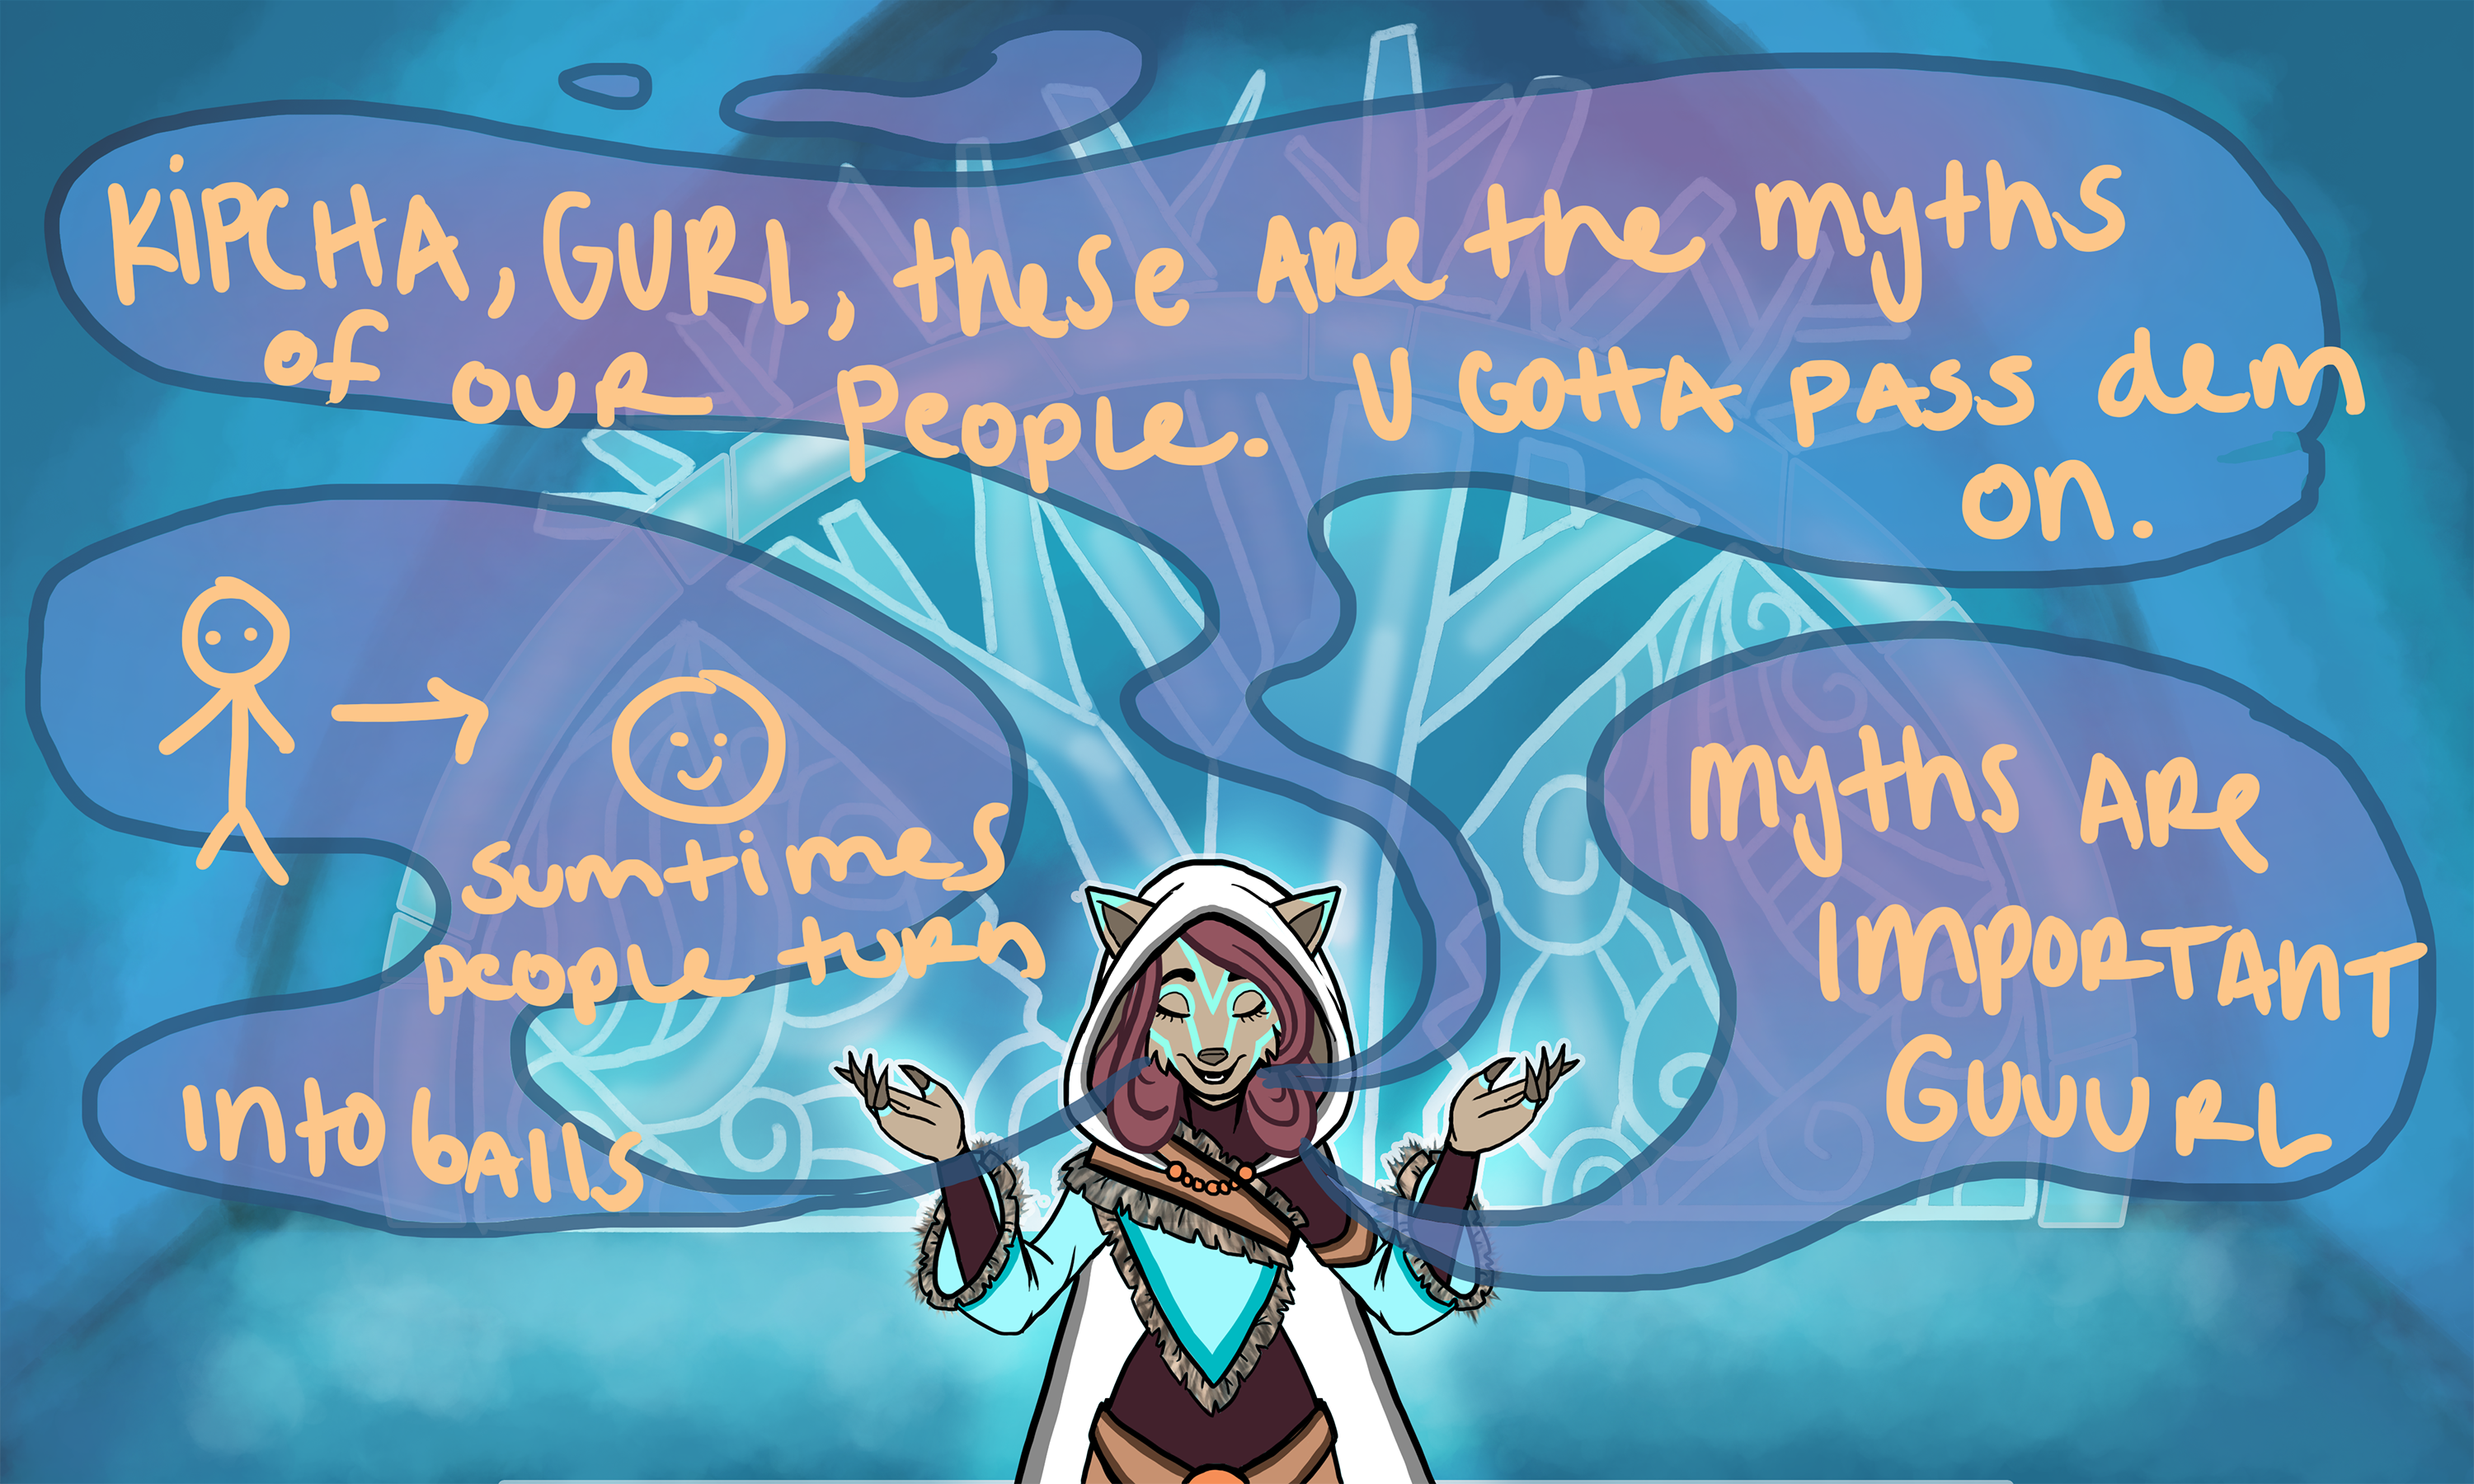 KiPCHA, GURL, these ARe the myths
of OUR People. U GOttA PASS dem
on.
sumtimes
people turn
into bAlls
myths ARe
IMPORTAnT
GUUURL